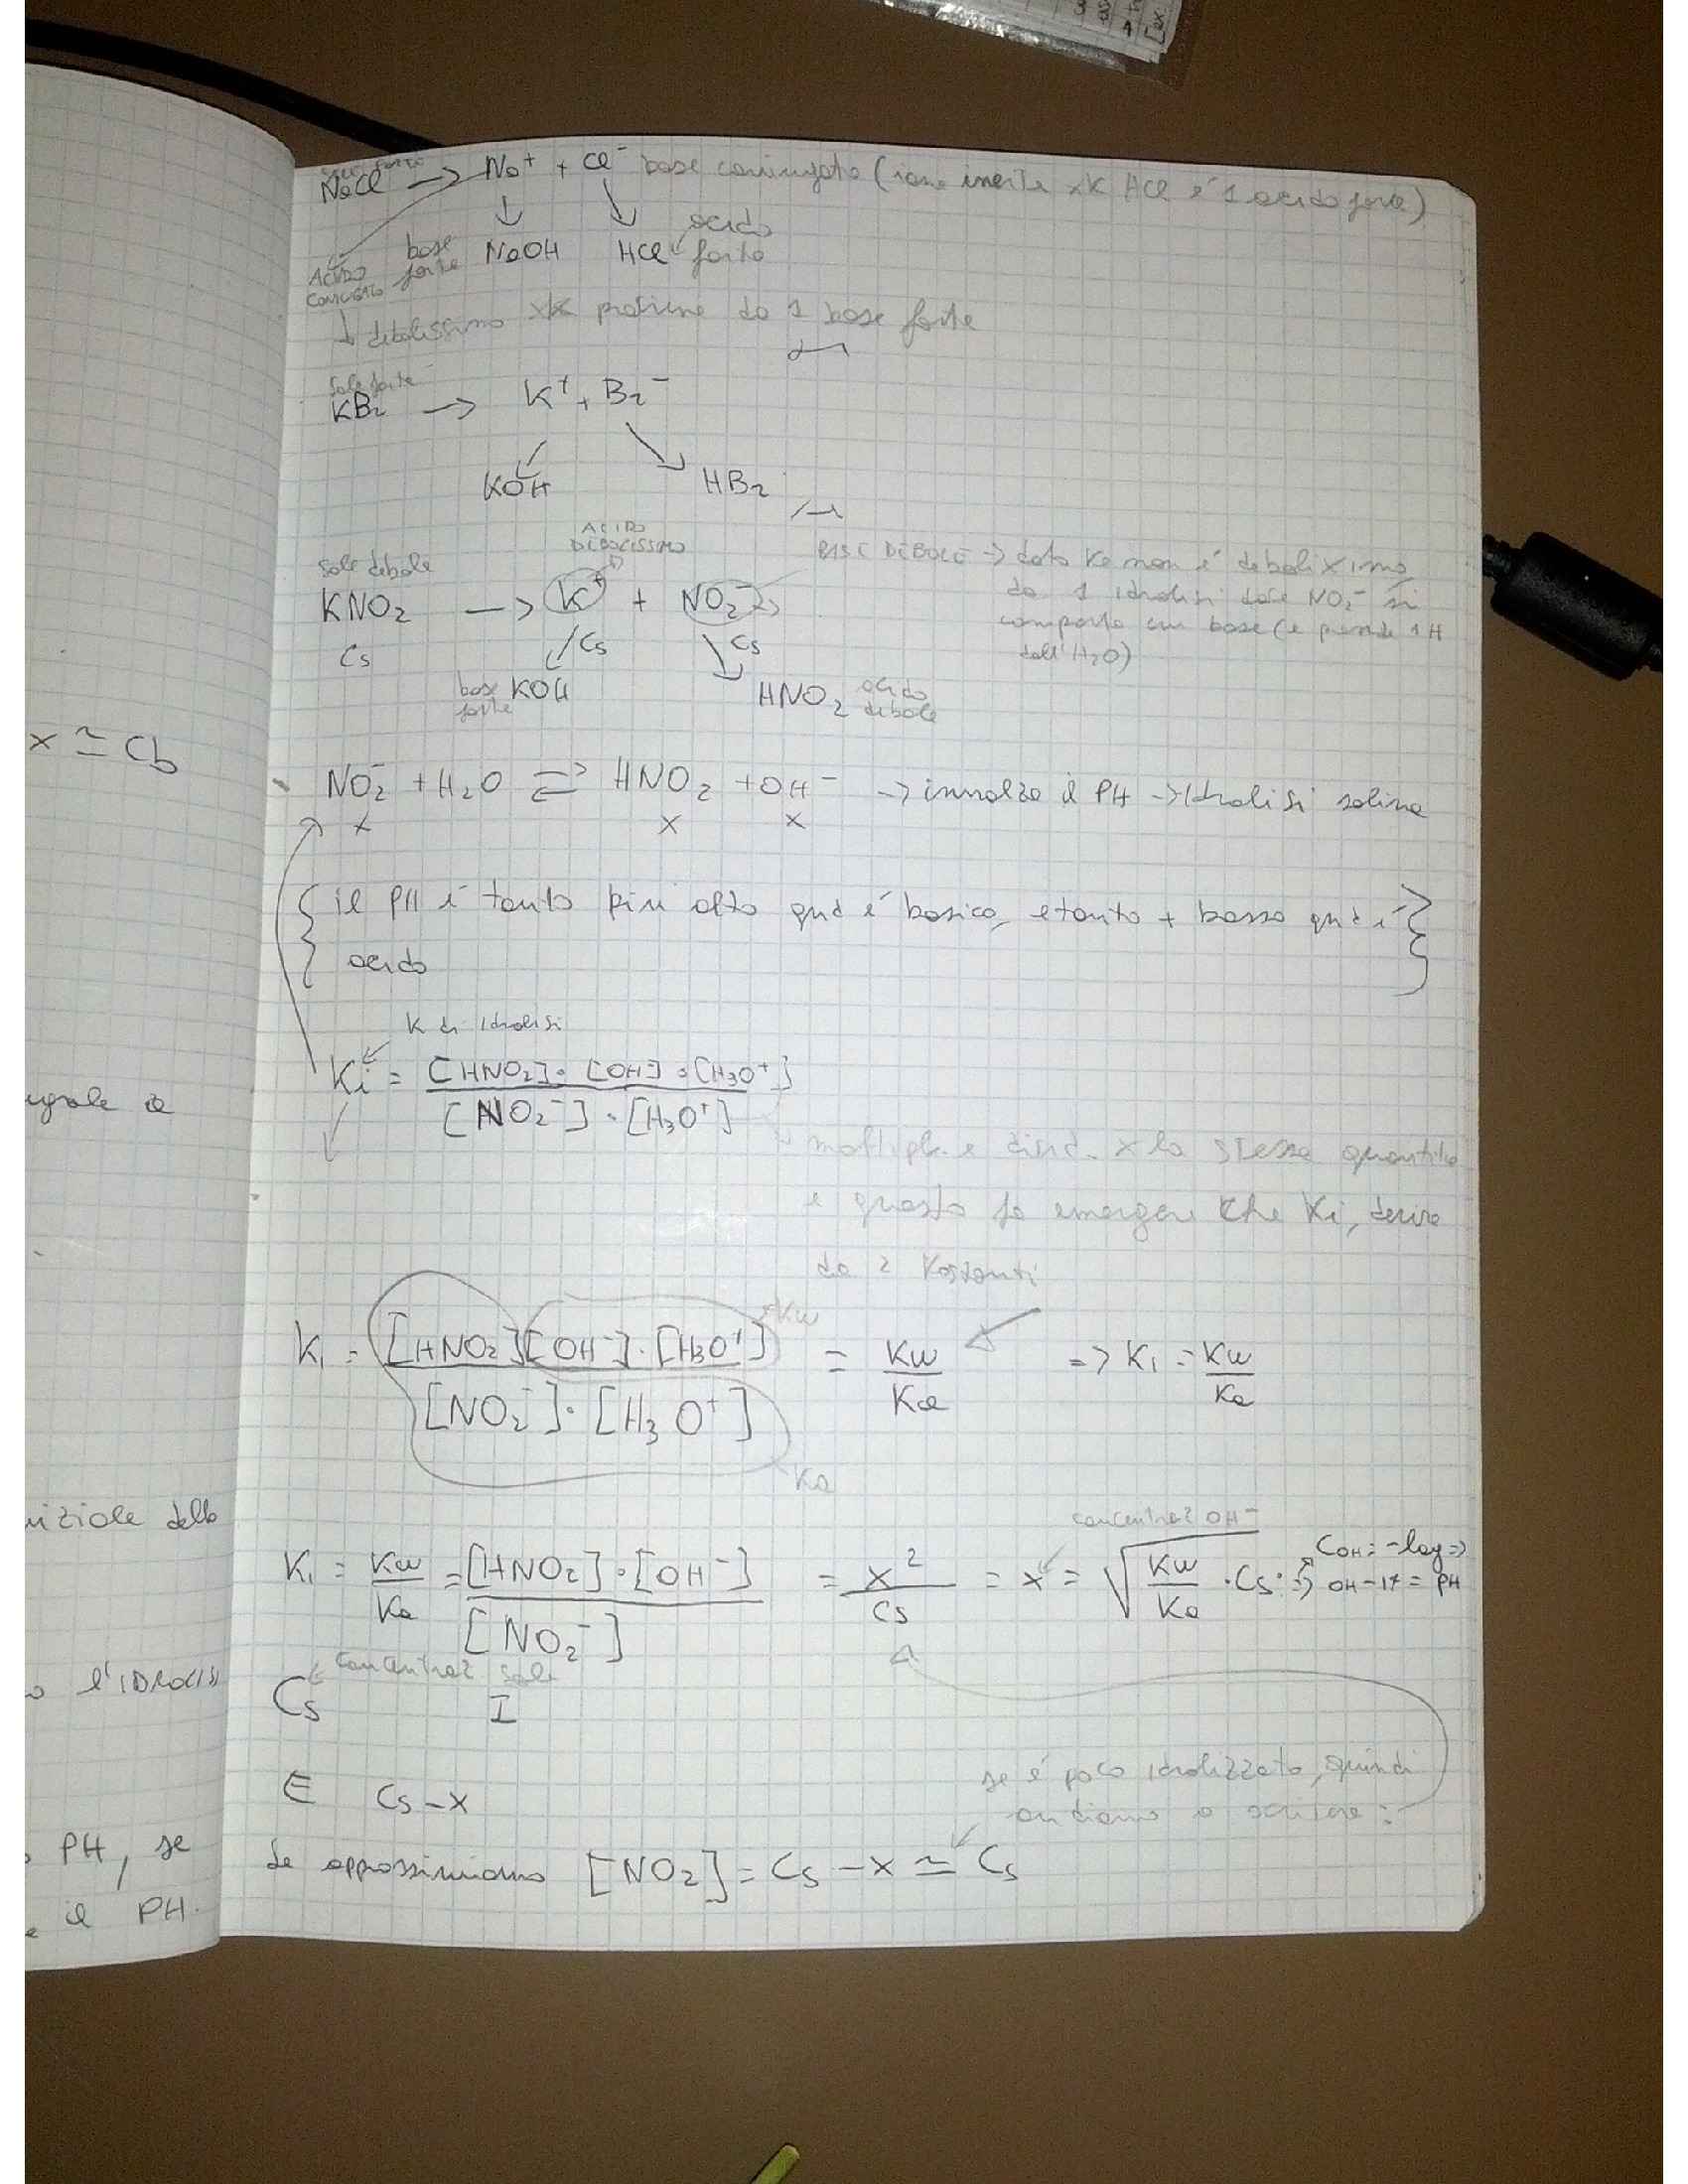 NaCl → Na⁺ + Cl⁻ base coniugata (ione inerte xk HCl è 1 acido forte)
base forte NaOH HCl acido forte
ACIDO CONIUGATO
↓ debolissimo xk proviene da 1 base forte
sale forte
KBr → K⁺ + Br⁻
KOH HBr
ACIDO DEBOLISSIMO
BASE DEBOLE → dato ke non è debolixximo,
sale debole
da 1 idrolisi dove NO₂⁻ si
KNO₂ → K⁺ + NO₂⁻
comporta come base (e prende 1 H
dall'H₂O)
Cs Cs Cs
base forte KOH HNO₂ acido debole
x ≃ Cb
NO₂⁻ + H₂O ⇌ HNO₂ + OH⁻ → innalza il PH → Idrolisi salina
x x x
{ il PH è tanto più alto qnd è basico, e tanto + basso qnd è }
acido
K di idrolisi
Ki = [HNO₂]·[OH]·[H₃O⁺] / [NO₂⁻]·[H₃O⁺]
uguale a
moltiplic. e divid. x la stessa quantità
e questo fa emergere che Ki, deriva
da 2 Kostanti
Kw
Ki = [HNO₂][OH⁻]·[H₃O⁺] / [NO₂⁻]·[H₃O⁺] = Kw / Ka => Ki = Kw / Ka
Ka
niziale della
concentraz OH⁻
Ki = Kw / Ka = [HNO₂]·[OH⁻] / [NO₂⁻] = x² / Cs = x = √ Kw / Ka · Cs => COH = -log =>
OH - 14 = PH
o l'IDROLISI
Cs concentraz sale
I
se è poco idrolizzato, quindi
E Cs - x
andiamo a scrivere:
PH, se
Se approssimiamo [NO₂] = Cs - x ≃ Cs
e il PH.